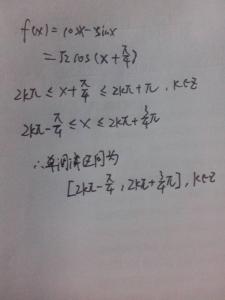 f(x) = cosx - sinx
= √2 cos(x + π/4)
2kπ ≤ x + π/4 ≤ 2kπ + π, k∈Z
2kπ - π/4 ≤ x ≤ 2kπ + 3/4 π
∴ 单调减区间为
[2kπ - π/4, 2kπ + 3/4 π], k∈Z